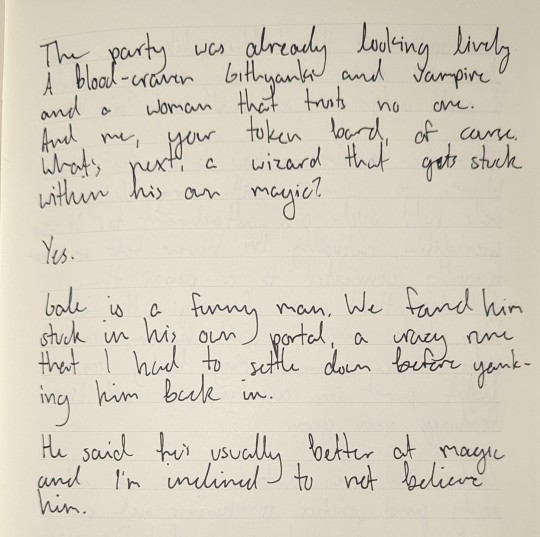 The party was already looking lively
A blood-craven Githyanki and Vampire
and a woman that trusts no one.
And me, your token bard, of course.
What's next, a wizard that gets stuck
within his own magic?
Yes.
Gale is a funny man. We found him
stuck in his own portal, a crazy rune
that I had to settle down before yank-
ing him back in.
He said he's usually better at magic
and I'm inclined to not believe
him.